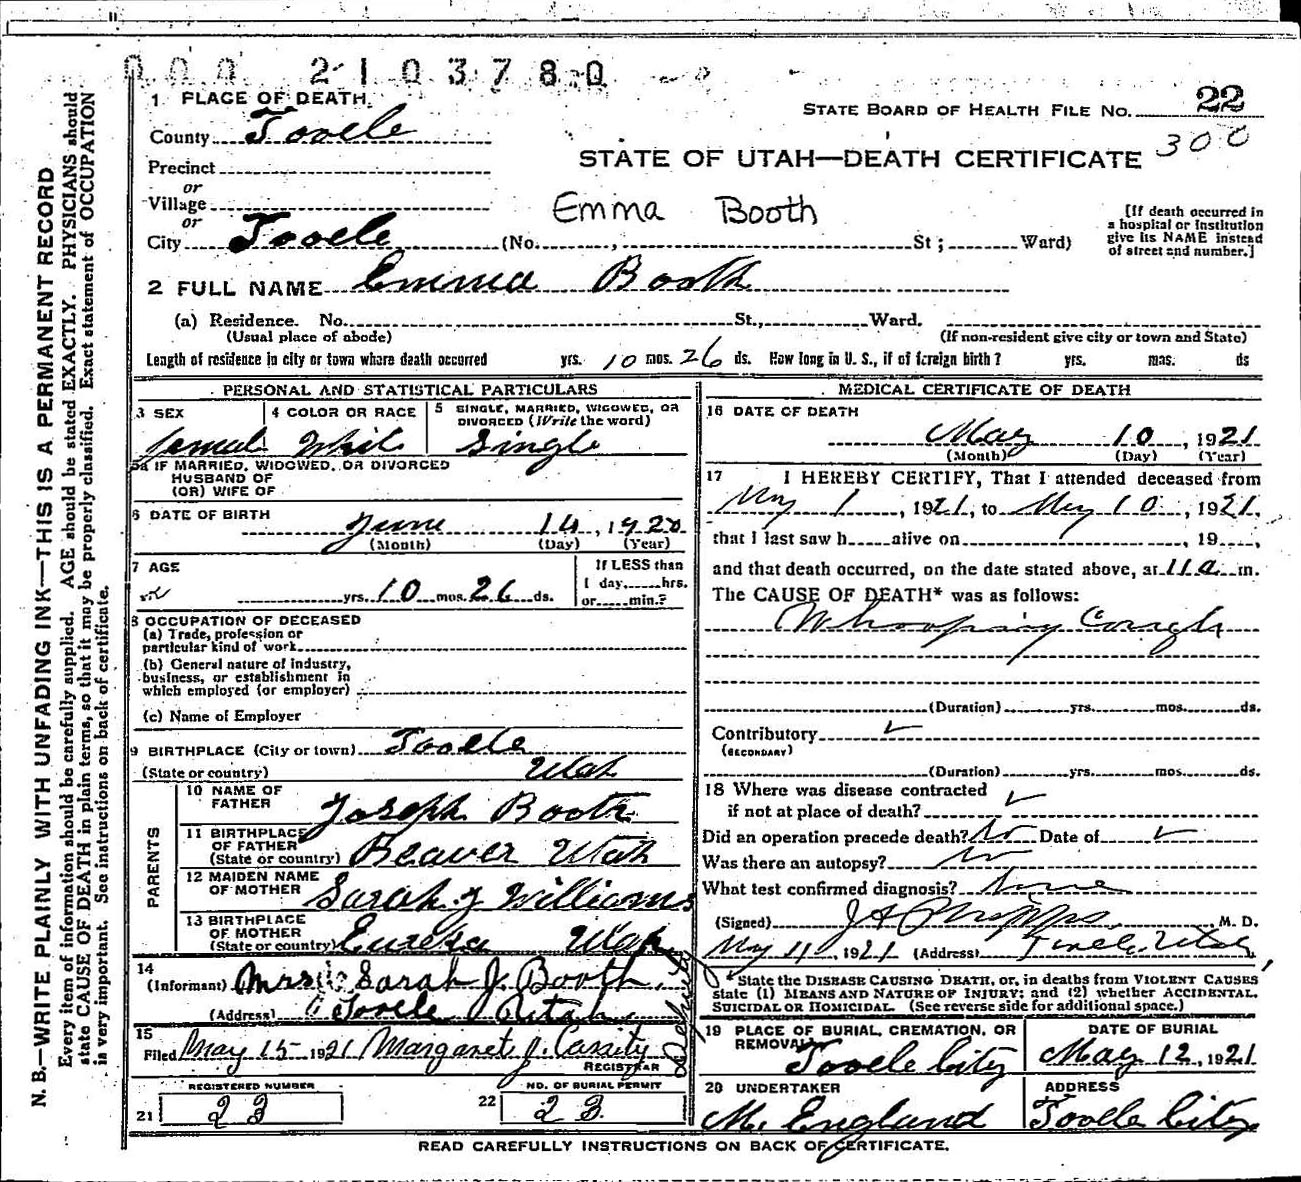 000 210378 0
1 PLACE OF DEATH
STATE BOARD OF HEALTH FILE NO. 22
County Tooele
300
STATE OF UTAH—DEATH CERTIFICATE
Precinct
or
Village
Emma Booth
or
City Tooele (No. , St; Ward)
[If death occurred in
a hospital or institution
give its NAME instead
of street and number.]
2 FULL NAME Emma Booth
(a) Residence. No. St., Ward.
(Usual place of abode) (If non-resident give city or town and State)
Length of residence in city or town where death occurred yrs. 10 mos. 26 ds. How long in U. S., if of foreign birth? yrs. mos. ds
PERSONAL AND STATISTICAL PARTICULARS
3 SEX 4 COLOR OR RACE 5 SINGLE, MARRIED, WIDOWED, OR
DIVORCED (Write the word)
Femal White Single
5a IF MARRIED, WIDOWED, OR DIVORCED
HUSBAND OF
(OR) WIFE OF
6 DATE OF BIRTH
June 14, 1920
(Month) (Day) (Year)
7 AGE
If LESS than
1 day, hrs.
yrs. 10 mos. 26 ds. or min.?
8 OCCUPATION OF DECEASED
(a) Trade, profession or
particular kind of work
(b) General nature of industry,
business, or establishment in
which employed (or employer)
(c) Name of Employer
9 BIRTHPLACE (City or town) Tooele
(State or country) Utah
PARENTS
10 NAME OF
FATHER Joseph Booth
11 BIRTHPLACE
OF FATHER
(State or country) Beaver Utah
12 MAIDEN NAME
OF MOTHER Sarah J Williams
13 BIRTHPLACE
OF MOTHER
(State or country) Eureka Utah
14
(Informant) Mrs Sarah J. Booth.
(Address) Tooele Utah.
15
Filed May 15 1921 Margaret J. Cassity
Deputy
REGISTRAR
REGISTERED NUMBER NO. OF BURIAL PERMIT
21 23 22 23
MEDICAL CERTIFICATE OF DEATH
16 DATE OF DEATH
May 10, 1921
(Month) (Day) (Year)
17 I HEREBY CERTIFY, That I attended deceased from
May 1, 1921, to May 10, 1921,
that I last saw h alive on , 19 ,
and that death occurred, on the date stated above, at 11 a. m.
The CAUSE OF DEATH* was as follows:
Whooping Cough
(Duration) yrs. mos. ds.
Contributory
(SECONDARY)
(Duration) yrs. mos. ds.
18 Where was disease contracted
if not at place of death?
Did an operation precede death? No Date of
Was there an autopsy? No
What test confirmed diagnosis? None
(Signed) J A Phipps, M. D.
May 11, 1921 (Address) Tooele, Utah
* State the DISEASE CAUSING DEATH, or, in deaths from VIOLENT CAUSES,
State (1) MEANS AND NATURE OF INJURY; and (2) whether ACCIDENTAL,
SUICIDAL OR HOMICIDAL. (See reverse side for additional space.)
19 PLACE OF BURIAL, CREMATION, OR
REMOVAL DATE OF BURIAL
Tooele City May 12, 1921
20 UNDERTAKER ADDRESS
M. England Tooele City
READ CAREFULLY INSTRUCTIONS ON BACK OF CERTIFICATE.
N. B.—WRITE PLAINLY WITH UNFADING INK—THIS IS A PERMANENT RECORD
Every item of information should be carefully supplied. AGE should be stated EXACTLY. PHYSICIANS should
state CAUSE OF DEATH in plain terms, so that it may be properly classified. Exact statement of OCCUPATION
is very important. See instructions on back of certificate.